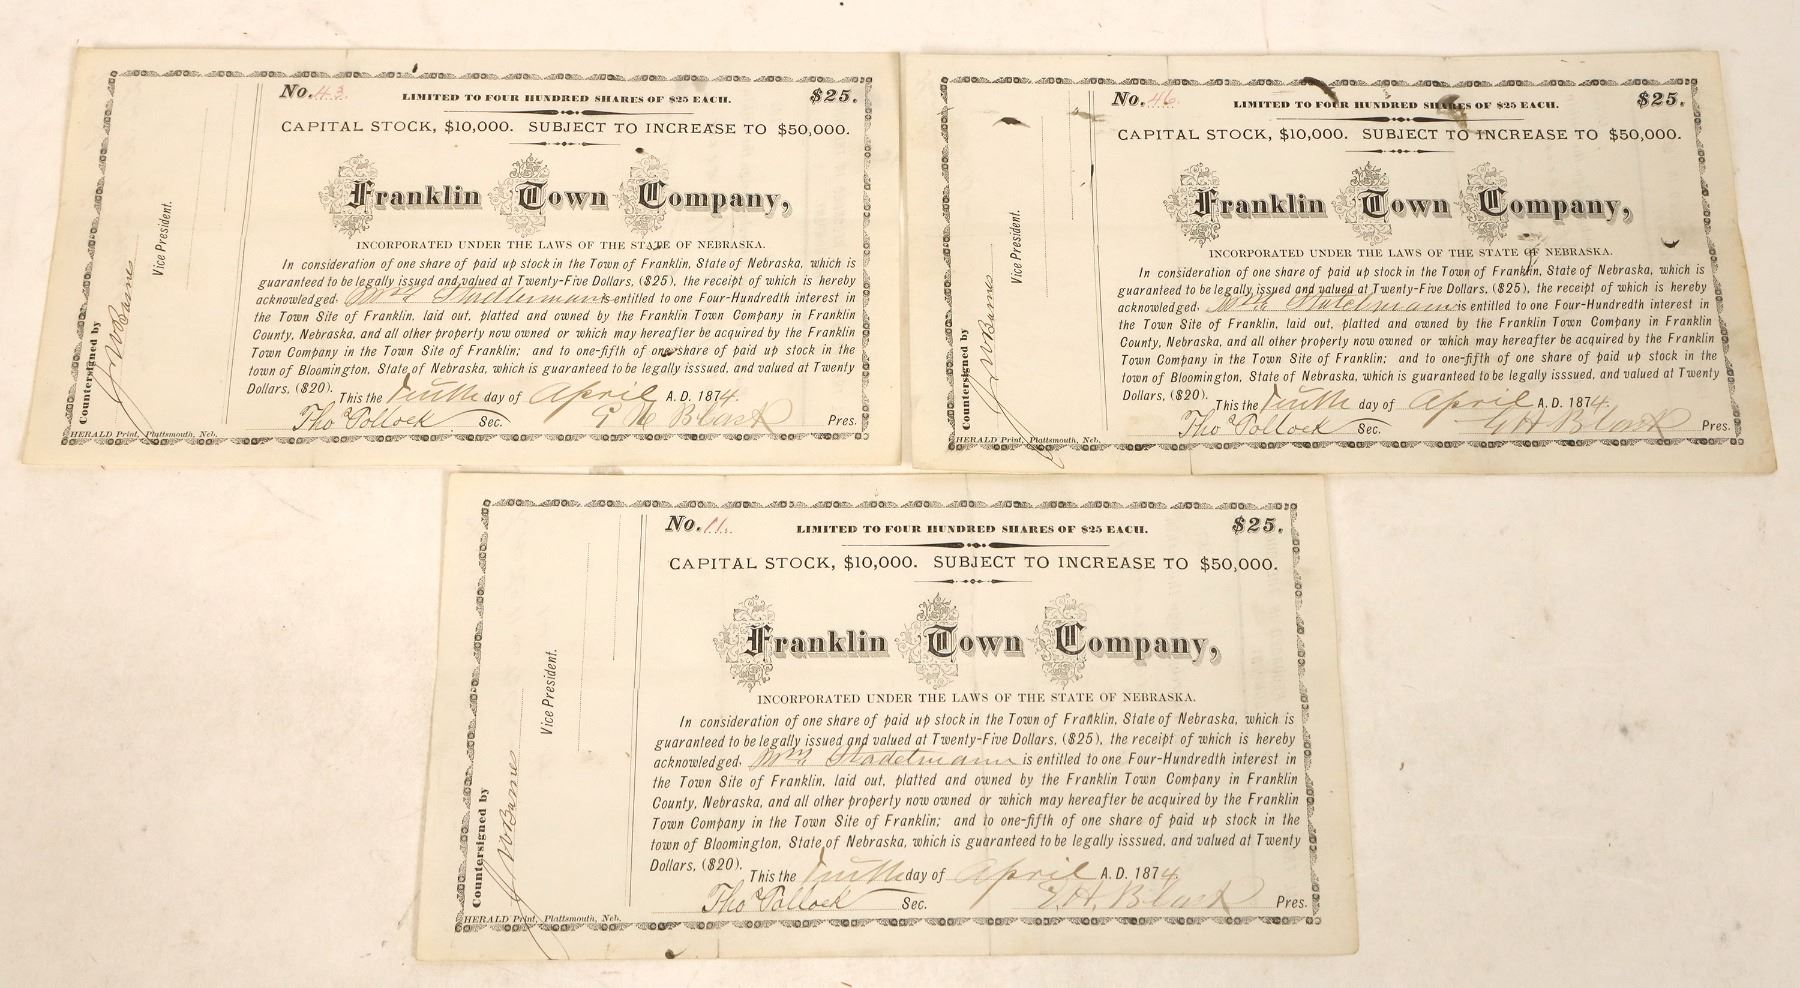 No. 43.
LIMITED TO FOUR HUNDRED SHARES OF $25 EACH.
$25.
CAPITAL STOCK, $10,000. SUBJECT TO INCREASE TO $50,000.
Franklin Town Company,
INCORPORATED UNDER THE LAWS OF THE STATE OF NEBRASKA.
In consideration of one share of paid up stock in the Town of Franklin, State of Nebraska, which is
guaranteed to be legally issued and valued at Twenty-Five Dollars, ($25), the receipt of which is hereby
acknowledged, Wm Stadelmann is entitled to one Four-Hundredth interest in
the Town Site of Franklin, laid out, platted and owned by the Franklin Town Company in Franklin
County, Nebraska, and all other property now owned or which may hereafter be acquired by the Franklin
Town Company in the Town Site of Franklin; and to one-fifth of one share of paid up stock in the
town of Bloomington, State of Nebraska, which is guaranteed to be legally isssued, and valued at Twenty
Dollars, ($20).
This the Tenth day of April A.D. 1874.
Thos Pollock Sec.
Pres.
Countersigned by
J W Barnes
Vice President.
HERALD Print, Plattsmouth, Neb.
No. 46.
LIMITED TO FOUR HUNDRED SHARES OF $25 EACH.
$25.
CAPITAL STOCK, $10,000. SUBJECT TO INCREASE TO $50,000.
Franklin Town Company,
INCORPORATED UNDER THE LAWS OF THE STATE OF NEBRASKA.
In consideration of one share of paid up stock in the Town of Franklin, State of Nebraska, which is
guaranteed to be legally issued and valued at Twenty-Five Dollars, ($25), the receipt of which is hereby
acknowledged, Wm Stadelmann is entitled to one Four-Hundredth interest in
the Town Site of Franklin, laid out, platted and owned by the Franklin Town Company in Franklin
County, Nebraska, and all other property now owned or which may hereafter be acquired by the Franklin
Town Company in the Town Site of Franklin; and to one-fifth of one share of paid up stock in the
town of Bloomington, State of Nebraska, which is guaranteed to be legally isssued, and valued at Twenty
Dollars, ($20).
This the Tenth day of April A.D. 1874.
Thos Pollock Sec.
Pres.
Countersigned by
J W Barnes
Vice President.
HERALD Print, Plattsmouth, Neb.
No. 11.
LIMITED TO FOUR HUNDRED SHARES OF $25 EACH.
$25.
CAPITAL STOCK, $10,000. SUBJECT TO INCREASE TO $50,000.
Franklin Town Company,
INCORPORATED UNDER THE LAWS OF THE STATE OF NEBRASKA.
In consideration of one share of paid up stock in the Town of Franklin, State of Nebraska, which is
guaranteed to be legally issued and valued at Twenty-Five Dollars, ($25), the receipt of which is hereby
acknowledged, Wm Stadelmann is entitled to one Four-Hundredth interest in
the Town Site of Franklin, laid out, platted and owned by the Franklin Town Company in Franklin
County, Nebraska, and all other property now owned or which may hereafter be acquired by the Franklin
Town Company in the Town Site of Franklin; and to one-fifth of one share of paid up stock in the
town of Bloomington, State of Nebraska, which is guaranteed to be legally isssued, and valued at Twenty
Dollars, ($20).
This the Tenth day of April A.D. 1874.
Thos Pollock Sec.
Pres.
Countersigned by
J W Barnes
Vice President.
HERALD Print, Plattsmouth, Neb.